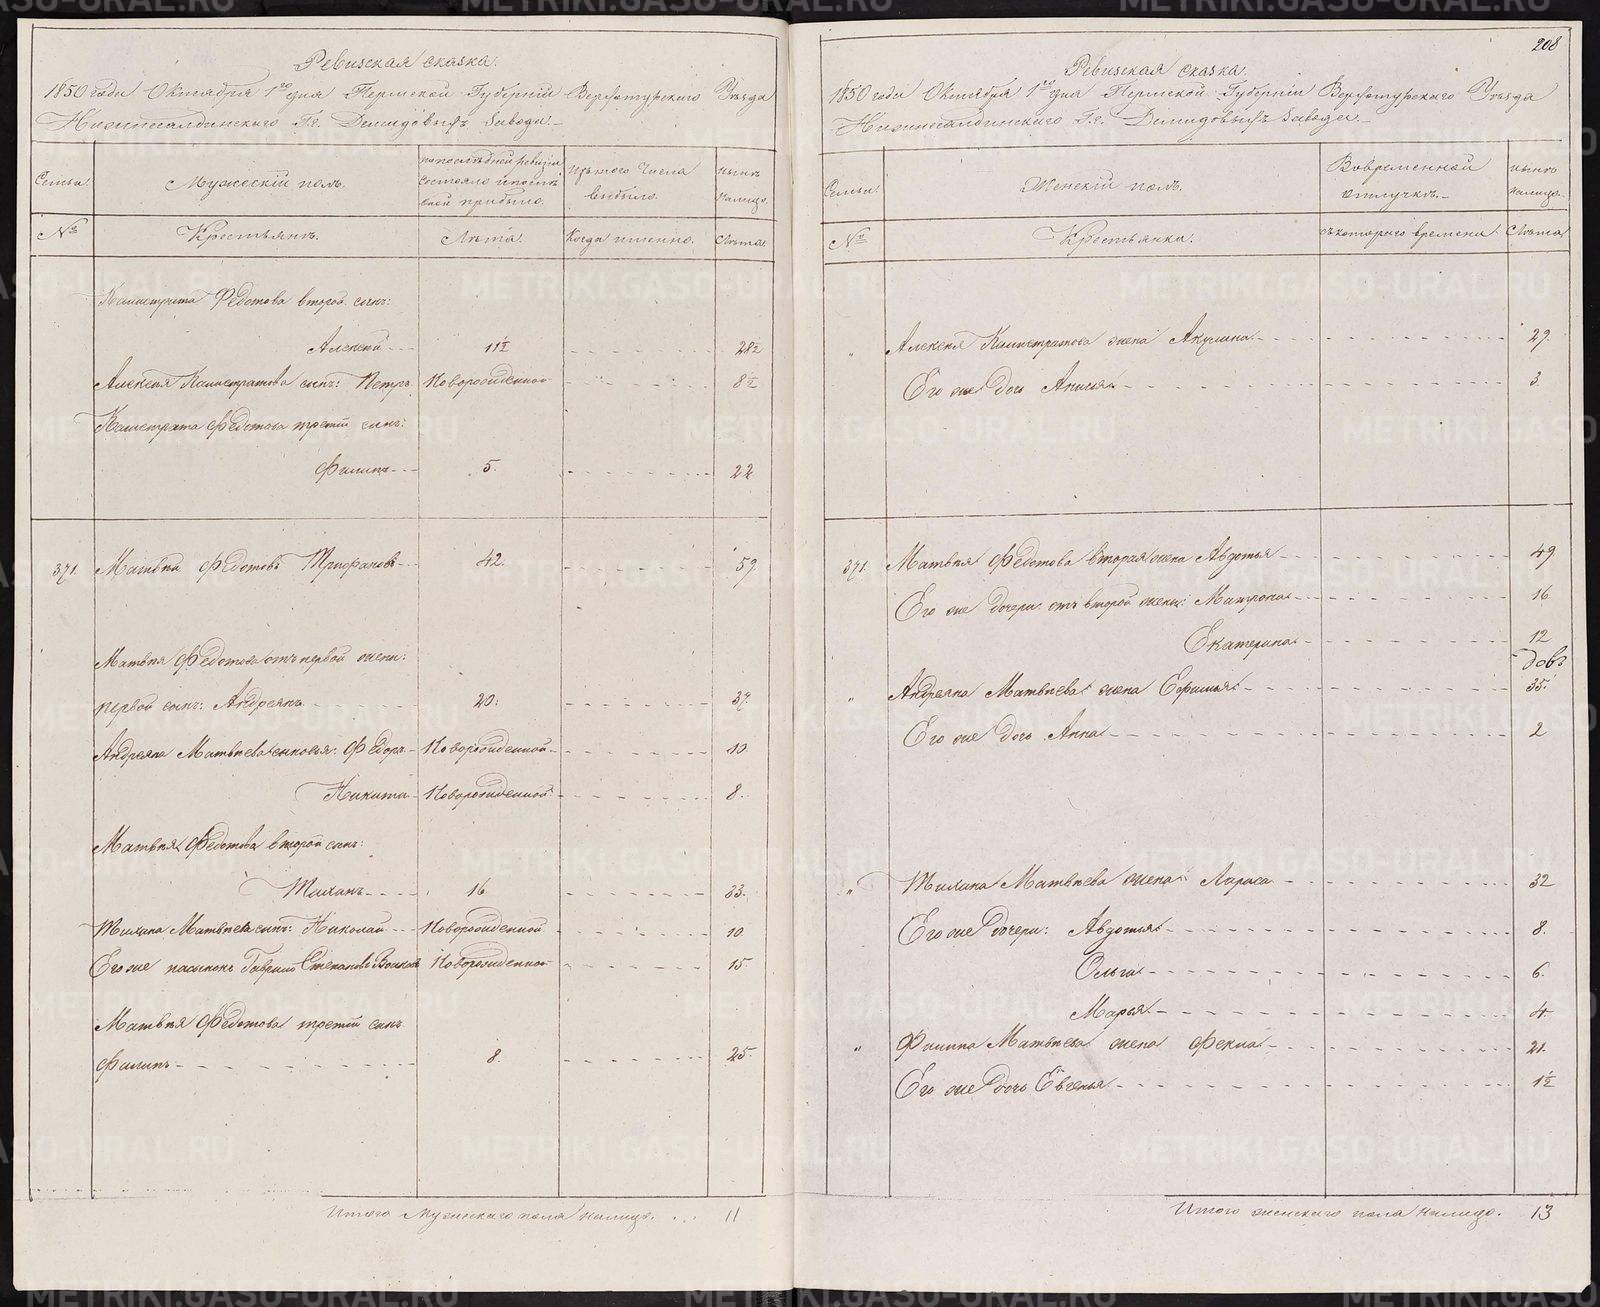 Ревизская сказка.
1850 года Октября 1го дня Пермской Губернии Верхотурского Уезда
Нижнесалдинского Г.г. Демидовыхъ Завода.
Семьи.
Мужескій полъ.
по последней ревизіи состояло и после оной прибыло.
Изъ того числа выбыло.
ныне налицо.
№
Крестьянъ.
Лета.
Когда именно.
Лета.
Калистрата Федотова второй сынъ:
Алексей 11½ 28½
Алексея Калистратова сынъ: Петръ Новорожденной 8½
Калистрата Федотова третій сынъ:
Филипъ 5. 22
371. Матвей Федотовъ Трифановъ 42. 59.
Матвея Федотова отъ первой жены:
первой сынъ: Андреянъ 20. 37.
Андреяна Матвеева сыновья: Федоръ Новорожденной 10
Никита Новорожденной 8.
Матвея Федотова второй сынъ:
Тиханъ 16 33.
Тихана Матвеева сынъ: Николай Новорожденной 10
Его же пасынокъ Гаврило Степановъ Новорожденной 15
Матвея Федотова третій сынъ
Филипъ 8. 25.
Итого мужескаго пола налицо. 11
208
Ревизская сказка.
1850 года Октября 1го дня Пермской Губерніи Верхотурского Уезда
Нижнесалдинского Г.г. Демидовыхъ Завода.
Семьи.
Женскій полъ.
Вовременной отлучке.
ныне налицо.
№
Крестьянки.
съ которого времени.
Лета
" Алексея Калистратова жена Акулина 29.
Его же дочь Анисья 3.
371. Матвея Федотова вторая жена Авдотья 49
Его же дочери отъ второй жены: Матрона 16
Екатерина 12
" Андреяна Матвеева жена Ефимья 35.
Его же дочь Анна 2
" Тихана Матвеева жена Лариса 32
Его же дочери: Авдотья 8.
Ольга 6.
Марья 4.
" Филипа Матвеева жена Фекла 21.
Его же дочь Евгенья 1½
Итого женскаго пола налицо. 13
METRIKI.GASO-URAL.RU